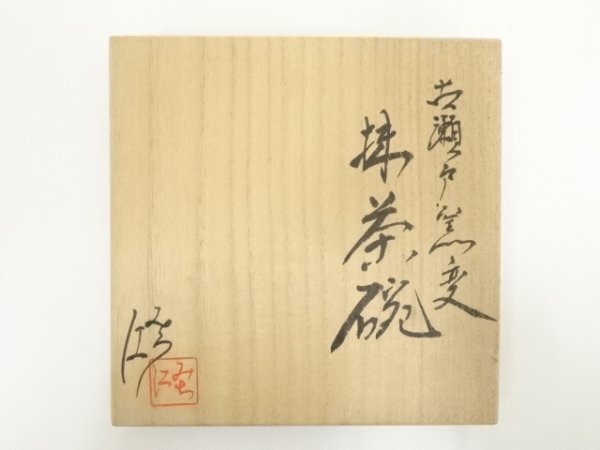 古瀬戸窯変
抹茶碗